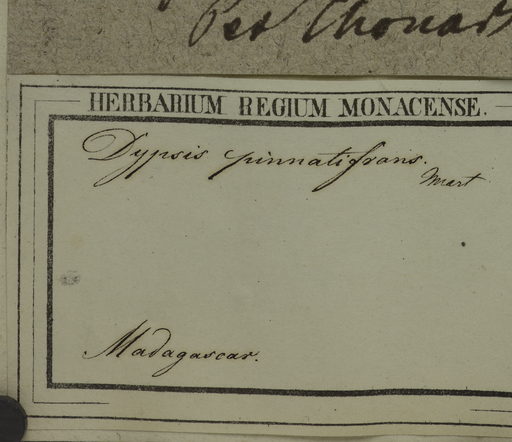 Pet Thouars
HERBARIUM REGIUM MONACENSE.
Dypsis pinnatifrons.
Mart
Madagascar.